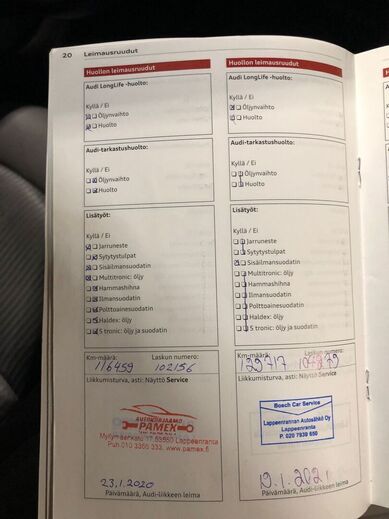 20 Leimausruudut
Huollon leimausruudut
Audi LongLife -huolto:
Kyllä / Ei
Öljynvaihto
Huolto
Audi-tarkastushuolto:
Kyllä / Ei
Öljynvaihto
Huolto
Lisätyöt:
Kyllä / Ei
Jarruneste
Sytytystulpat
Sisäilmansuodatin
Multitronic: öljy
Hammashihna
Ilmansuodatin
Polttoainesuodatin
Haldex: öljy
S tronic: öljy ja suodatin
Km-määrä: Laskun numero:
116459 102156
Liikkumisturva, asti: Näyttö Service
AUTOKORJAAMO
PAMEX
Myllymäenkatu 17, 53550 Lappeenranta
Puh. 010 3365 333, www.pamex.fi
23.1.2020
Päivämäärä, Audi-liikkeen leima
Huollon leimausruudut
Audi LongLife -huolto:
Kyllä / Ei
Öljynvaihto
Huolto
Audi-tarkastushuolto:
Kyllä / Ei
Öljynvaihto
Huolto
Lisätyöt:
Kyllä / Ei
Jarruneste
Sytytystulpat
Sisäilmansuodatin
Multitronic: öljy
Hammashihna
Ilmansuodatin
Polttoainesuodatin
Haldex: öljy
S tronic: öljy ja suodatin
Km-määrä: Laskun numero:
129717
Liikkumisturva, asti: Näyttö Service
Bosch Car Service
Lappeenrannan Autosähkö Oy
Lappeenranta
P. 020 7939 650
19.1.2021
Päivämäärä, Audi-liikkeen leima